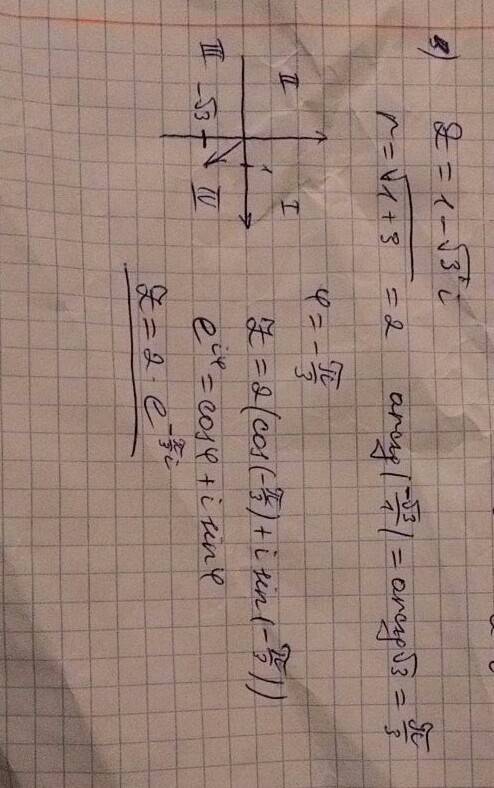 3) z = 1 - √3 i
r = √(1+3) = 2 arctg|-√3/1| = arctg √3 = π/3
II I
1
-√3
III IV
φ = -π/3
z = 2(cos(-π/3) + i sin(-π/3))
e^{iφ} = cosφ + i sinφ
z = 2 · e^{-π/3 i}